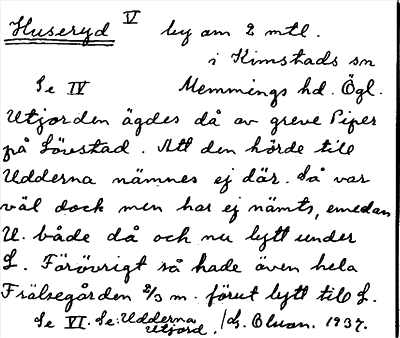 Huseryd V by om 2 mtl.
i Kimstads sn
Se IV Memmings hd. Ögl.
Utjorden ägdes då av greve Piper
på Lövstad. Att den hörde till
Udderna nämnes ej där. Så var
väl dock men har ej nämts, emedan
U. både då och nu lytt under
L. Förövrigt så hade även hela
Frälsegården 2/3 m. förut lytt till L.
Se VI. Se: Udderna
Utjord. 1937.